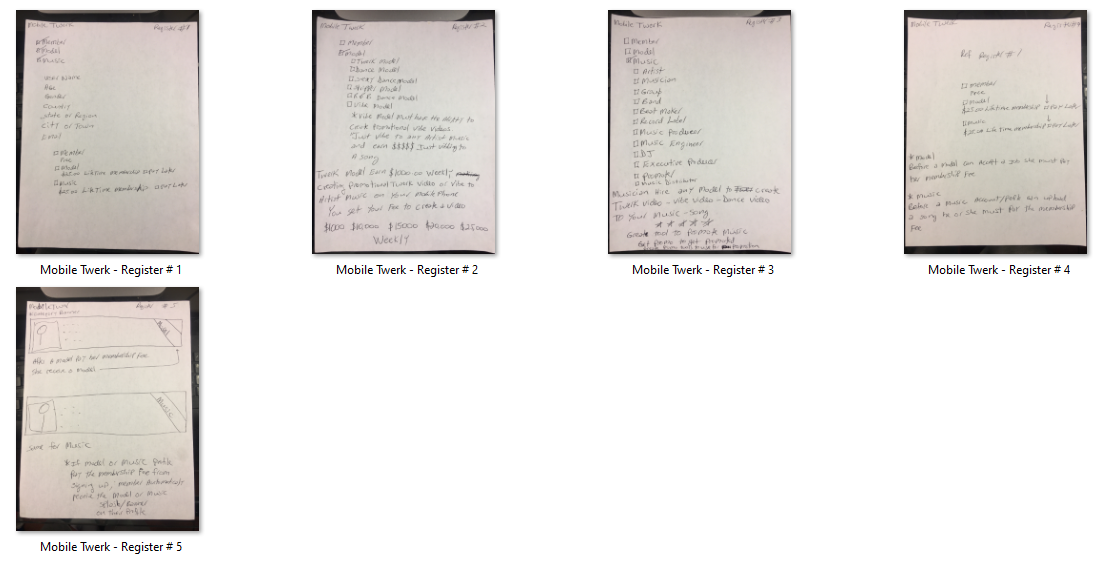 Mobile Twerk Register #1
Member
Model
Music
User Name
Age
Gender
Country
State or Region
City or Town
Email
Member
Free
Model
Life Time membership Pay Later
Music
Life Time membership Pay Later
Mobile Twerk - Register # 1
Mobile Twerk Register
Member
Model
Twerk Model
Dance Model
Sexy Dance Model
Model
R&B Dance Model
Vibe Model
*Vibe Model must have the ability to
Promotional Vibe Videos.
Just vibe to any Artist Music
and earn $$$$$ Just vibing to
a song
Twerk Model Earn $1000 or Weekly
creating promotional Twerk Video or Vibe to
Artist Music on Your Mobile Phone
You set Your Fee to create a video
$1000 $10,000 $15000 $20,000 $25,000
Weekly
Mobile Twerk - Register # 2
Mobile Twerk Register # 3
Member
Model
Music
Artist
Musician
Group
Band
Beat Maker
Record Label
Music Producer
Music Engineer
DJ
Executive Producer
Promoter
Music Distributor
Musician Hire any Model to create
Twerk Video - Vibe Video - Dance Video
To Your Music - Song
Great tool to Promote Music
Mobile Twerk - Register # 3
Mobile Twerk Register #4
Register # 1
Member
Free
Model
$25.00 Life Time membership Pay Later
Music
Life Time membership Pay Later
* Model
Before a Model can accept a job she must pay
her membership Fee
* Music
Before a Music can upload
a song he or she must pay the membership
Fee
Mobile Twerk - Register # 4
Register # 5
Model
After a Model pay her membership Fee
she receive a Model
Music
Same for Music
*If Model or Music profile
Pay the membership Fee from
signing up, member Automatically
receive the Model or Music
Banner
on their Profile
Mobile Twerk - Register # 5